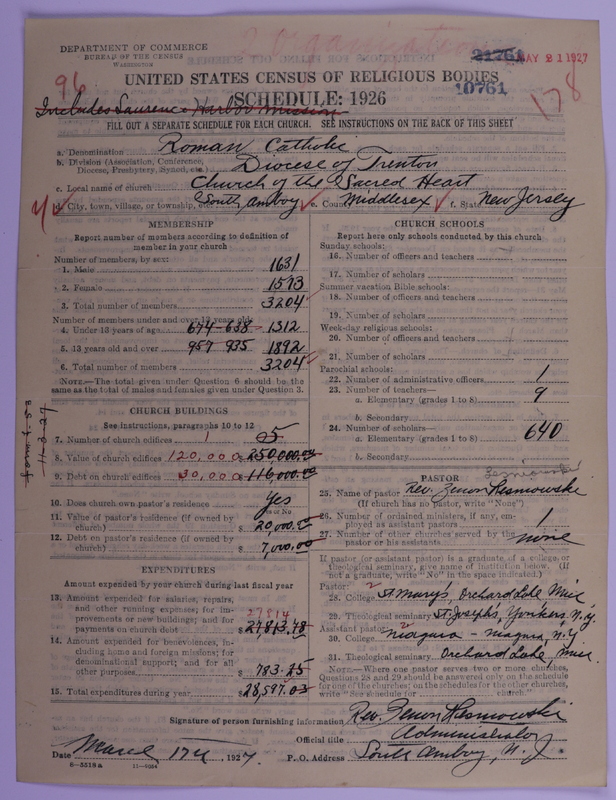 DEPARTMENT OF COMMERCE
BUREAU OF THE CENSUS
WASHINGTON
2 organizations
21761 MAY 21 1927
10761
96
178
UNITED STATES CENSUS OF RELIGIOUS BODIES
SCHEDULE: 1926
Includes Laurence Harbor Mission
FILL OUT A SEPARATE SCHEDULE FOR EACH CHURCH. SEE INSTRUCTIONS ON THE BACK OF THIS SHEET
a. Denomination Roman Catholic
b. Division (Association, Conference, Diocese, Presbytery, Synod, etc.) Diocese of Trenton
c. Local name of church Church of the Sacred Heart
d. City, town, village, or township, South Amboy e. County Middlesex f. State New Jersey
MEMBERSHIP
Report number of members according to definition of
member in your church
Number of members, by sex:
1. Male 1631
2. Female 1573
3. Total number of members 3204
Number of members under and over 13 years old:
4. Under 13 years of age 674-638 1312
5. 13 years old and over 957 935 1892
6. Total number of members 3204
NOTE.—The total given under Question 6 should be the
same as the total of males and females given under Question 3.
CHURCH BUILDINGS
See instructions, paragraphs 10 to 12
7. Number of church edifices 1 5
8. Value of church edifices 120,000 $250,000.00
9. Debt on church edifices 30,000 $116,000.00
10. Does church own pastor's residence Yes
Yes or No
11. Value of pastor's residence (if owned by
church) $20,000.00
12. Debt on pastor's residence (if owned by
church) $7,000.00
EXPENDITURES
Amount expended by your church during last fiscal year
13. Amount expended for salaries, repairs,
and other running expenses; for im-
provements or new buildings; and for
payments on church debt 27814 $27,813.78
14. Amount expended for benevolences, in-
cluding home and foreign missions; for
denominational support; and for all
other purposes $783.25
15. Total expenditures during year $28,597.03
CHURCH SCHOOLS
Report here only schools conducted by this church
Sunday schools:
16. Number of officers and teachers
17. Number of scholars
Summer vacation Bible schools:
18. Number of officers and teachers
19. Number of scholars
Week-day religious schools:
20. Number of officers and teachers
21. Number of scholars
Parochial schools:
22. Number of administrative officers 1
23. Number of teachers—
a. Elementary (grades 1 to 8) 9
b. Secondary
24. Number of scholars—
a. Elementary (grades 1 to 8) 640
b. Secondary
PASTOR
25. Name of pastor Rev. Zenon Lesniowski
(If church has no pastor, write "None")
26. Number of ordained ministers, if any, em-
ployed as assistant pastors 1
27. Number of other churches served by the
pastor or his assistants none
If pastor (or assistant pastor) is a graduate of a college or
theological seminary, give name of institution below. (If
not a graduate, write "No" in the space indicated.)
Pastor: 2
28. College St. Mary's, Orchard Lake, Mich
29. Theological seminary St. Joseph's, Yonkers, N.Y.
Assistant pastor: 2
30. College Niagara - Niagara, N.Y.
31. Theological seminary Orchard Lake, Mich.
NOTE.—Where one pastor serves two or more churches,
Questions 28 and 29 should be answered only on the schedule
for one of the churches; on the schedules for the other churches,
write "See schedule for church."
Signature of person furnishing information Rev. Zenon Lesniowski
Official title Administrator
Date March 17th, 1927. P. O. Address South Amboy, N. J.
8-5518a 11-9084